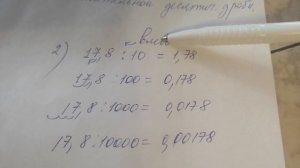 десятич. дроби.
влево
2) 17,8 : 10 = 1,78
17,8 : 100 = 0,178
17,8 : 1000 = 0,0178
17,8 : 10000 = 0,00178